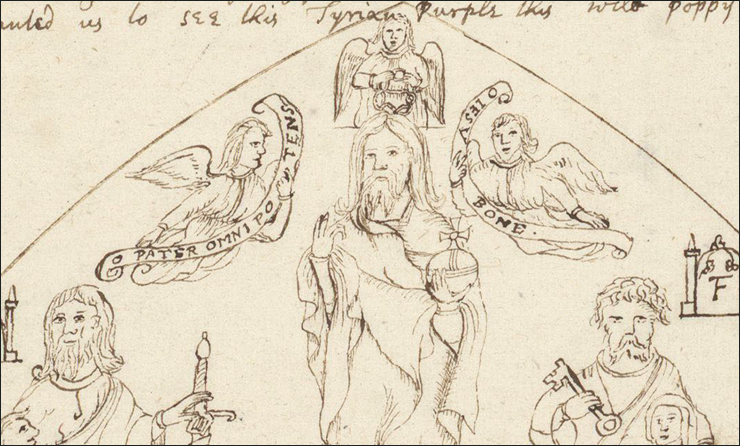 anted us to see this Tyrian Purple this wild poppy
O PATER OMNIPOTENS
O IESV
BONE.
F